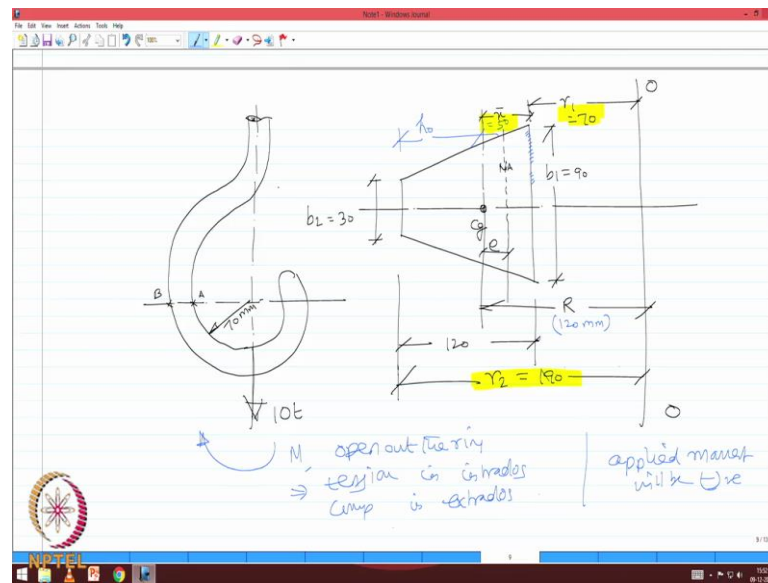 Note1 - Windows Journal
File Edit View Insert Actions Tools Help
B A
70mm
10t
M
h₀
x̄
= 50
r₁
= 70
O
NA
b₁ = 90
b₂ = 30
Cg
e
R
(120mm)
120
r₂ = 190
O
open out the rin
⇒ tession is intrados
comp is extrados
applied moment
will be ⊖ve
NPTEL
9
9/13
15:52